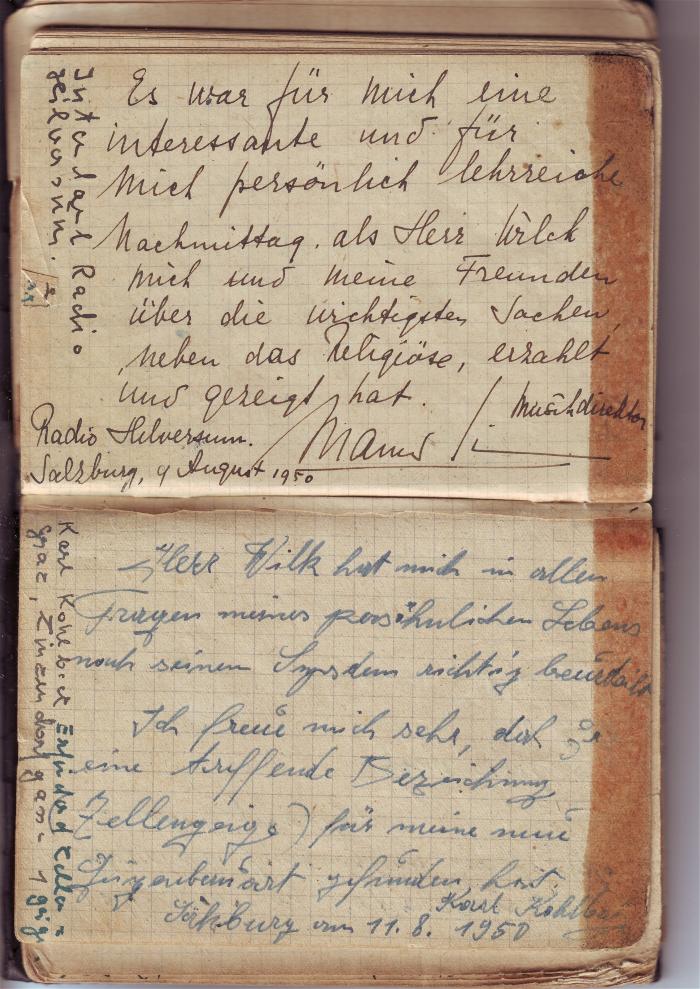 Es war für mich eine
interessante und für
mich persönlich lehrreiche
Nachmittag. als Herr Wilck
mich und meine Freunden
über die wichtigsten Sachen,
neben das Religiöse, erzahlt
und gezeigt hat.
Musikdirektor
Radio Hilversum.
Salzburg, 9 August 1950
Radio
Herr Wilk hat mich in allen
Fragen meines persöhnlichen Lebens
nach seinem Sysdem richtig beurteilt
Ich freue mich sehr, daß Er
eine treffende Bezeichnung
Zellengeige) für meine neue
Geigenbauart gefunden hat.
Karl Kohlbat
am 11. 8. 1950
Karl
Graz, Zinzendorfgasse 1